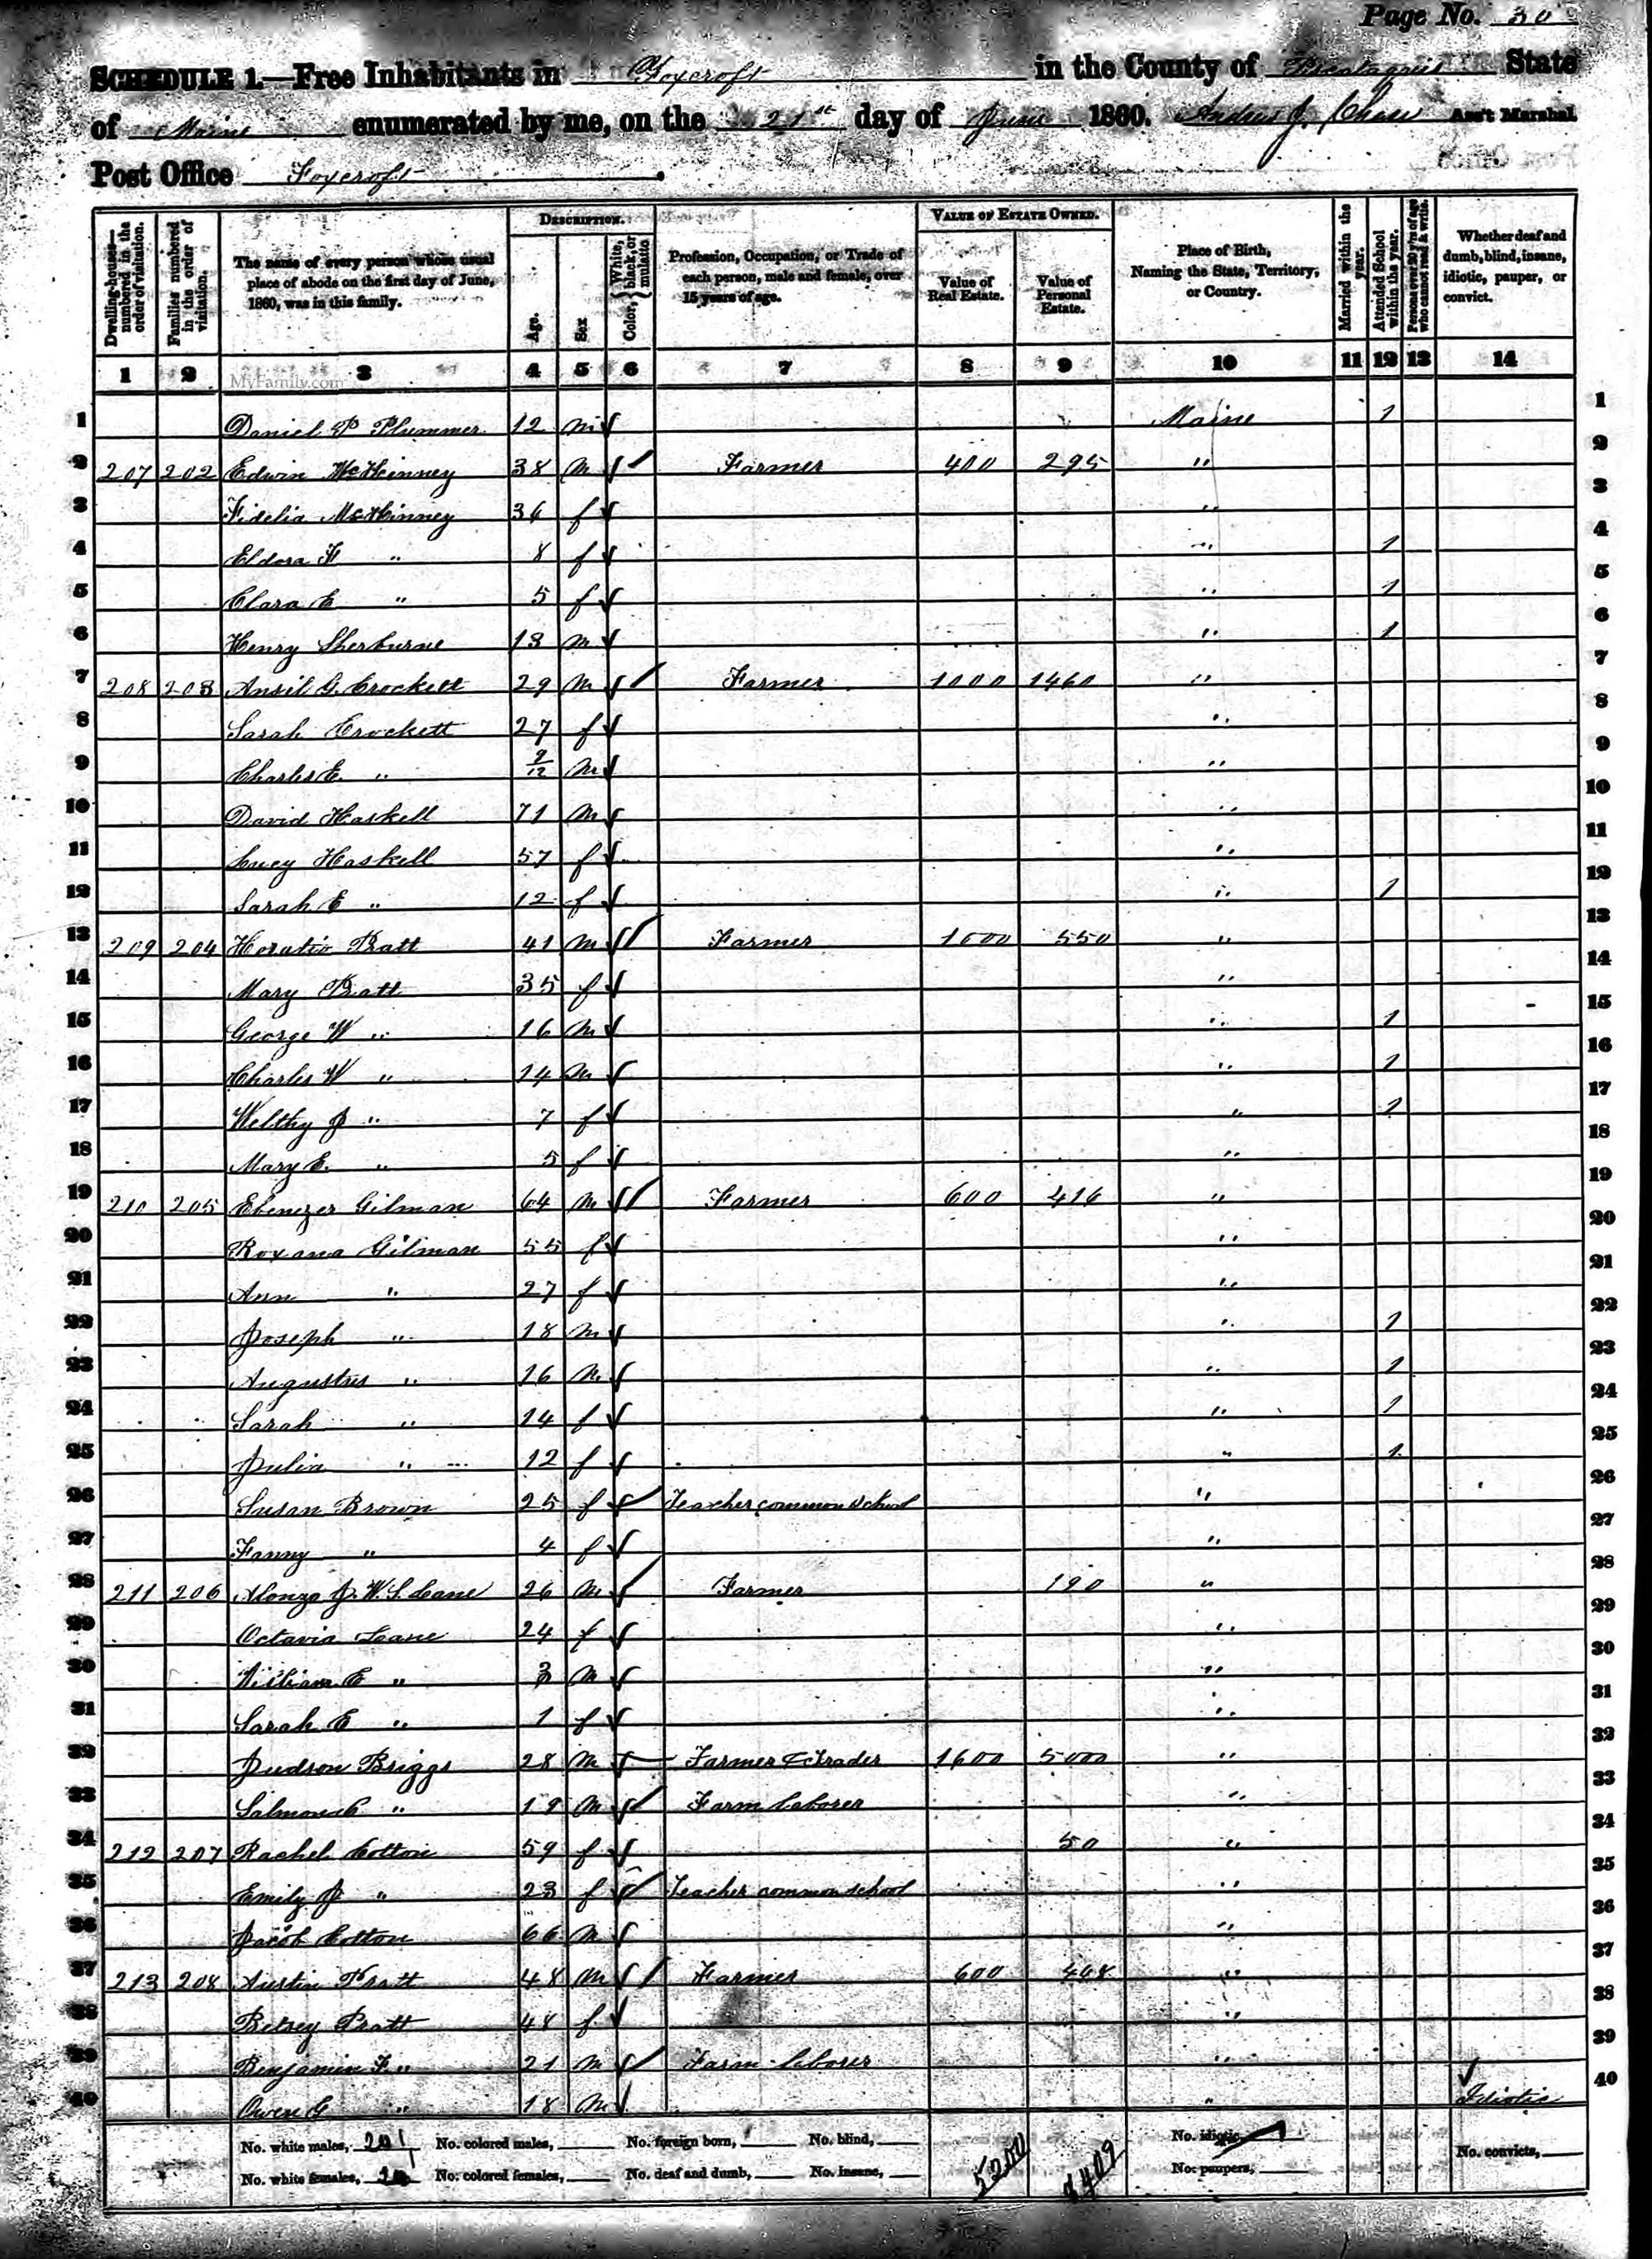 Page No. 30
SCHEDULE 1.—Free Inhabitants in Foxcroft in the County of Piscataquis State
of Maine enumerated by me, on the 21st day of June 1860. Andrew J. Chase Ass't Marshal
Post Office Foxcroft.
DESCRIPTION. VALUE OF ESTATE OWNED.
Dwelling-houses—numbered in the order of visitation. Families numbered in the order of visitation. The name of every person whose usual place of abode on the first day of June, 1860, was in this family. Age. Sex Color, { White, black, or mulatto Profession, Occupation, or Trade of each person, male and female, over 15 years of age. Value of Real Estate. Value of Personal Estate. Place of Birth, Naming the State, Territory, or Country. Married within the year. Attended School within the year. Persons over 20 y'rs of age who cannot read & write. Whether deaf and dumb, blind, insane, idiotic, pauper, or convict.
1 2 3 4 5 6 7 8 9 10 11 12 13 14
MyFamily.com
1 Daniel P Plummer 12 m Maine 1 1
2 207 202 Edwin McKinney 38 m Farmer 400 295 " 2
3 Fidelia McKinney 36 f " 3
4 Eldora F " 8 f " 1 4
5 Clara E " 5 f " 1 5
6 Henry Sherburne 13 m " 1 6
7 208 203 Ansil G. Crockett 29 m Farmer 1000 1460 " 7
8 Sarah Crockett 27 f " 8
9 Charles E. " 9/12 m " 9
10 David Haskell 71 m " 10
11 Lucy Haskell 57 f " 11
12 Sarah E " 12 f " 1 12
13 209 204 Horatio Pratt 41 m Farmer 1000 550 " 13
14 Mary Pratt 35 f " 14
15 George W " 16 m " 1 15
16 Charles W " 14 m " 1 16
17 Welthy J " 7 f " 1 17
18 Mary E. " 5 f " 18
19 210 205 Ebenezer Gilman 64 m Farmer 600 416 " 19
20 Roxana Gilman 55 f " 20
21 Ann " 27 f " 21
22 Joseph " 18 m " 1 22
23 Augustus " 16 m " 1 23
24 Sarah " 14 f " 1 24
25 Julia " 12 f " 1 25
26 Susan Brown 25 f Teacher common school " 26
27 Fanny " 4 f " 27
28 211 206 Alonzo J. W. S. Lane 26 m Farmer 190 " 28
29 Octavia Lane 24 f " 29
30 William E " 3 m " 30
31 Sarah E " 1 f " 31
32 Judson Briggs 28 m Farmer & Trader 1600 5000 " 32
33 Salmon " 19 m Farm Laborer " 33
34 212 207 Rachel Cotton 59 f 50 " 34
35 Emily J " 23 f Teacher common school " 35
36 Jacob Cotton 66 m " 36
37 213 208 Austin Pratt 48 m Farmer 600 448 " 37
38 Betsey Pratt 48 f " 38
39 Benjamin F. " 21 m Farm laborer " 39
40 Owen G " 18 m " Idiotic 40
No. white males, No. colored males, No. foreign born, No. blind, 5200 8409 No. idiotic, 1 No. convicts,
No. white females, No. colored females, No. deaf and dumb, No. insane, No. paupers,